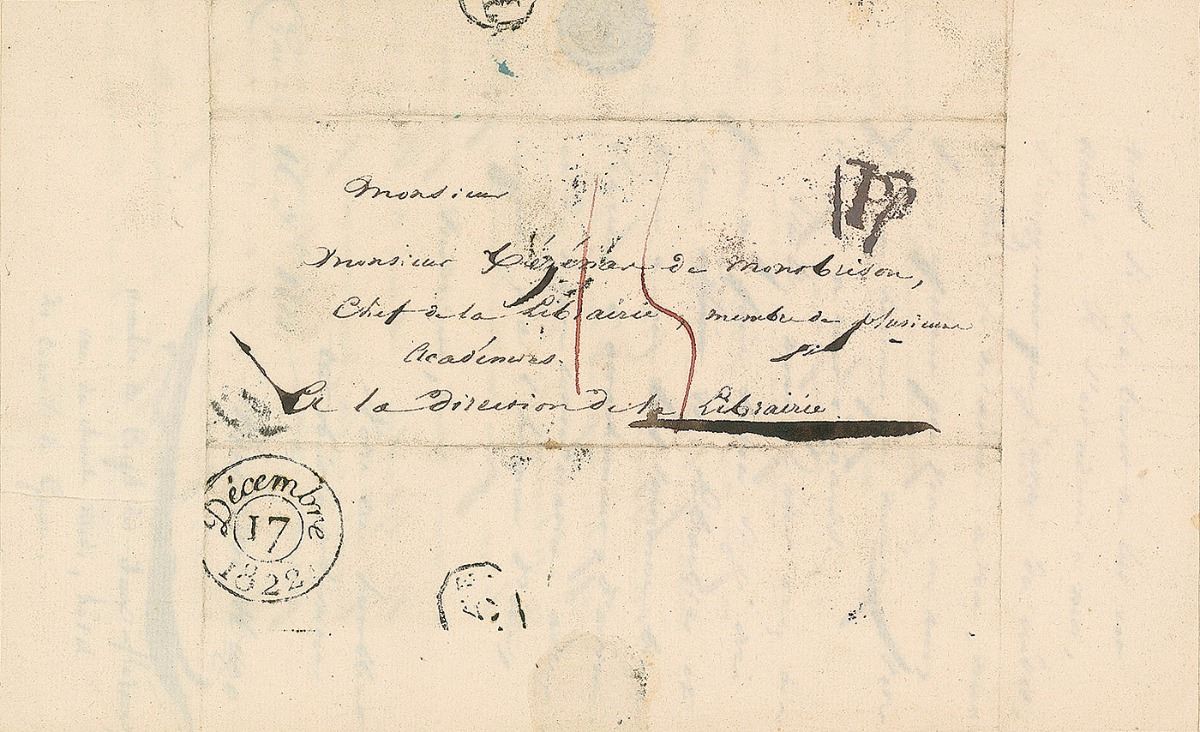 Monsieur
PP
Monsieur de Monbrison,
Chef de la Librairie, membre de plusieurs
Académies.
A la Direction de la Librairie.
Décembre
17
1822